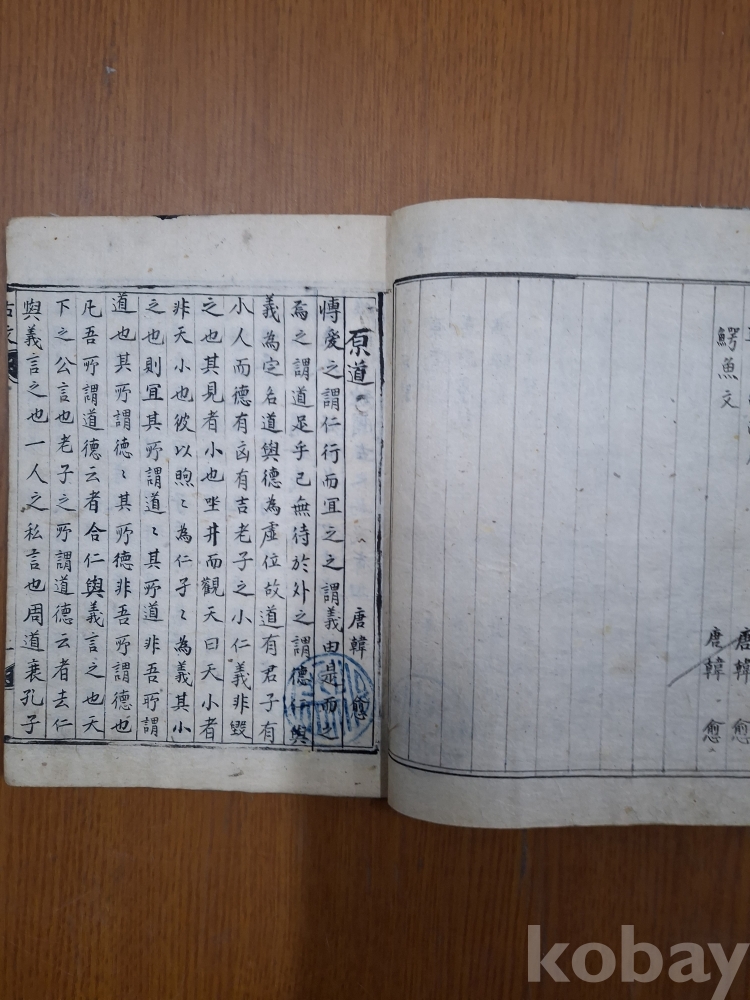 唐韓愈
鰐魚文 唐韓愈
原道 唐韓愈
愽愛之謂仁行而冝之之謂義由是而之
焉之謂道足乎己無待於外之謂德仁與
義為定名道與德為虛位故道有君子有
小人而德有凶有吉老子之小仁義非毀
之也其見者小也坐井而觀天曰天小者
非天小也彼以煦〻為仁孑〻為義其小
之也則冝其所謂道〻其所道非吾所謂
道也其所謂德〻其所德非吾所謂德也
凡吾所謂道德云者合仁與義言之也天
下之公言也老子之所謂道德云者去仁
與義言之也一人之私言也周道衰孔子
古文
kobay